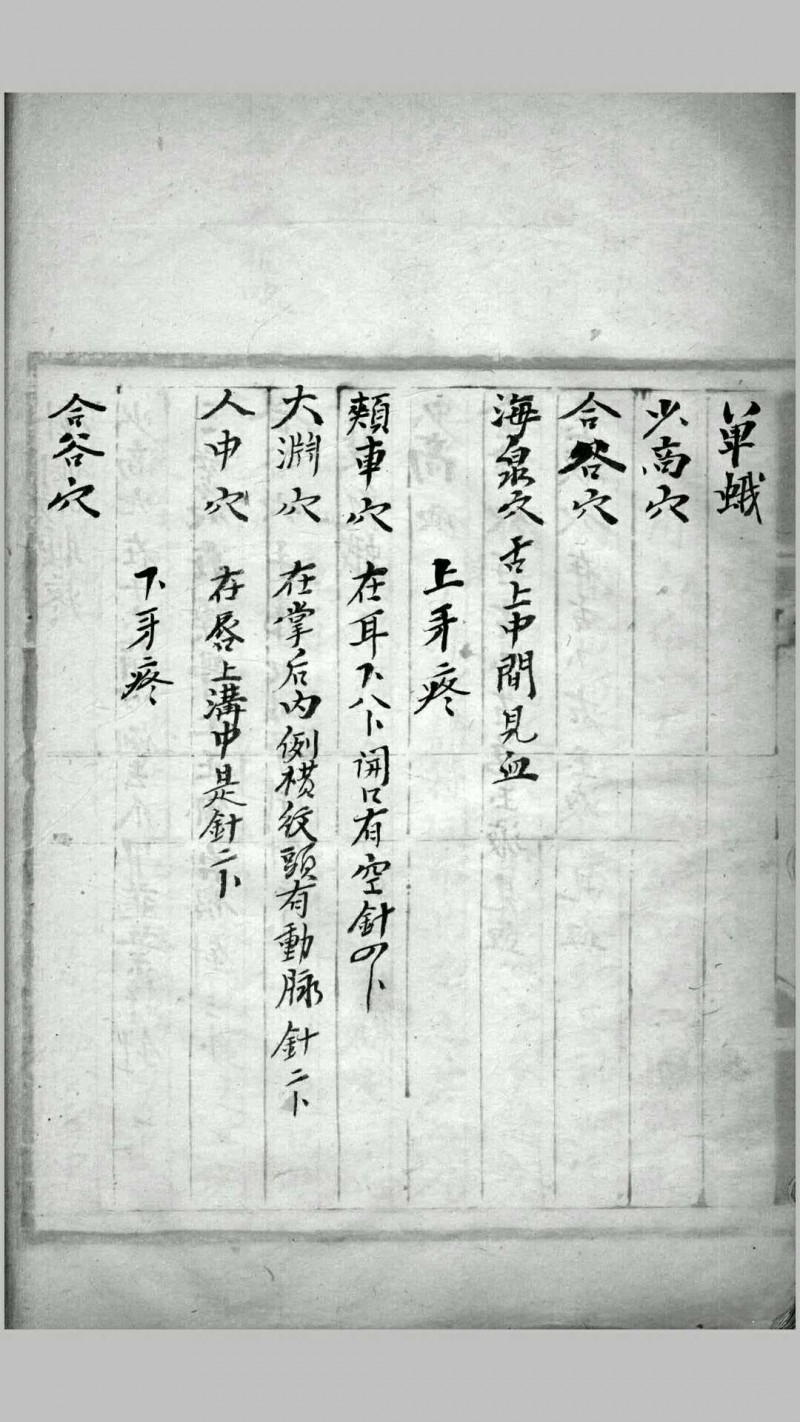 単蛾
少商穴
合谷穴
海泉穴 舌上中間見血
上牙疼
頰車穴 在耳下八卜開口有空針四卜
大淵穴 在掌后内側横紋頭有動脉針二卜
人中穴 在唇上溝中是針二卜
下牙疼
合谷穴